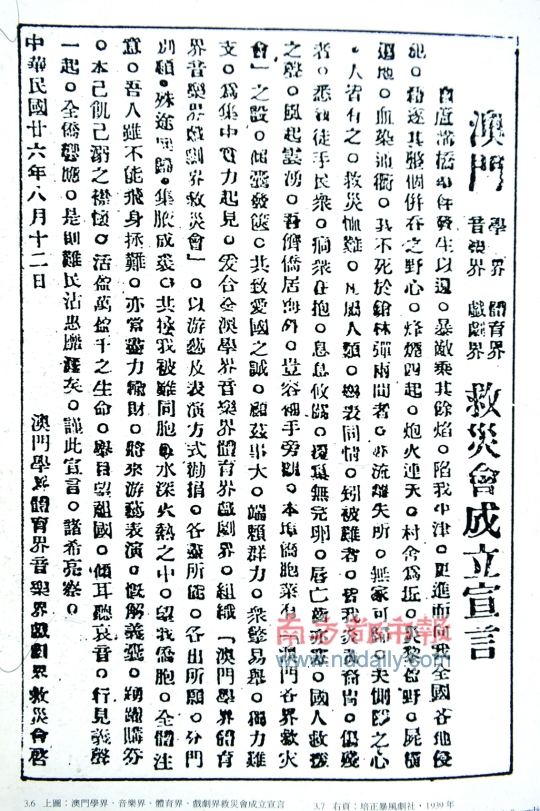 澳門學界音樂界體育界戲劇界救災會成立宣言
自盧溝橋事件發生以還。暴敵乘其餘焰。陷我平津。更進而向我全國各地侵
犯。藉遂其夥個併吞之野心。烽燧四起。炮火連天。村舍為丘。災黎盈野。屍橫
遍地。血染通衢。其不死於鎗林彈雨間者。亦流離失所。無家可歸。夫惻隱之心
。人皆有之。救災恤難。凡屬人類。應表同情。矧被難者。皆我炎黃裔冑。傷殘
者。悉我徒手民衆。痌瘝在抱。息息攸關。覆巢無完卵。唇亡齒亦寒。國人救援
之聲。風起雲湧。吾儕僑居海外。豈容袖手旁觀。本埠僑胞業有「澳門各界救災
會」之設。傾囊發篋。共致愛國之誠。顧茲事大。端賴群力。衆擎易舉。獨力難
支。為集中實力起見。爰合全澳學界音樂界體育界戲劇界。組織「澳門學界體育
界音樂界戲劇界救災會」。以游藝及表演方式勸捐。各盡所能。各出所願。分門
別類。殊途同歸。集腋成裘。共拯我被難同胞於水深火熱之中。望我僑胞。全體注
意。吾人雖不能飛身拯難。亦當盡力輸財。將來游藝表演。慨解義囊。踴躍購券
。本己飢己溺之襟懷。活盈萬盈千之生命。舉目望祖國。傾耳聽哀音。行見義聲
一起。全僑響應。是則難民沾惠靡涯矣。謹此宣言。諸希亮察。
澳門學界體育界音樂界戲劇界救災會啓
中華民國廿六年八月十二日
南方都市報
www.nddaily.com
3.6 上圖：澳門學界、音樂界、體育界、戲劇界救災會成立宣言
3.7 右頁：培正暴風劇社，1939年